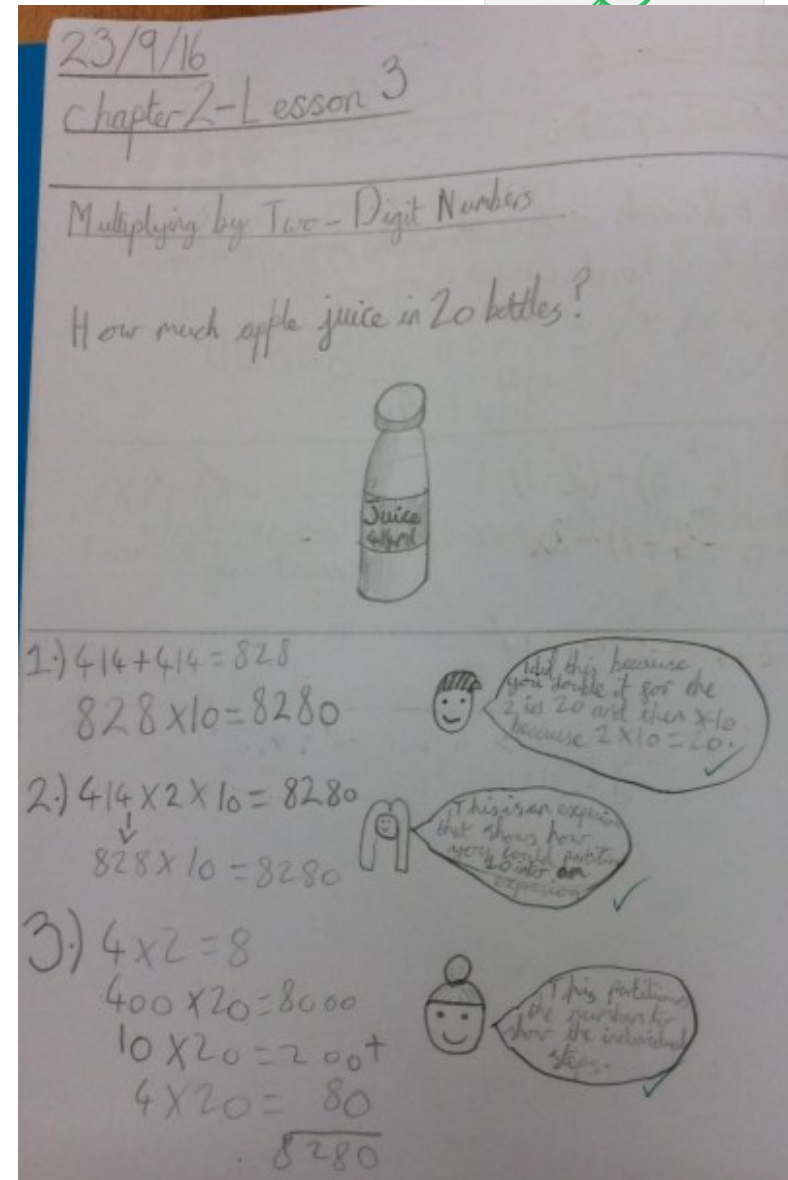 23/9/16
Chapter 2 - Lesson 3
Multiplying by Two-Digit Numbers
How much apple juice in 20 bottles?
Juice
414ml
1.) 414+414=828
828×10=8280
I did this because
you double it for the
2 in 20 and then ×10
because 2×10=20.
2.) 414×2×10=8280
828×10=8280
This is an
that shows how
you could partition
20 into an
expression
3.) 4×2=8
400×20=8000
10×20=200+
4×20= 80
8280
This partitions
the numbers to
show the individual
steps.